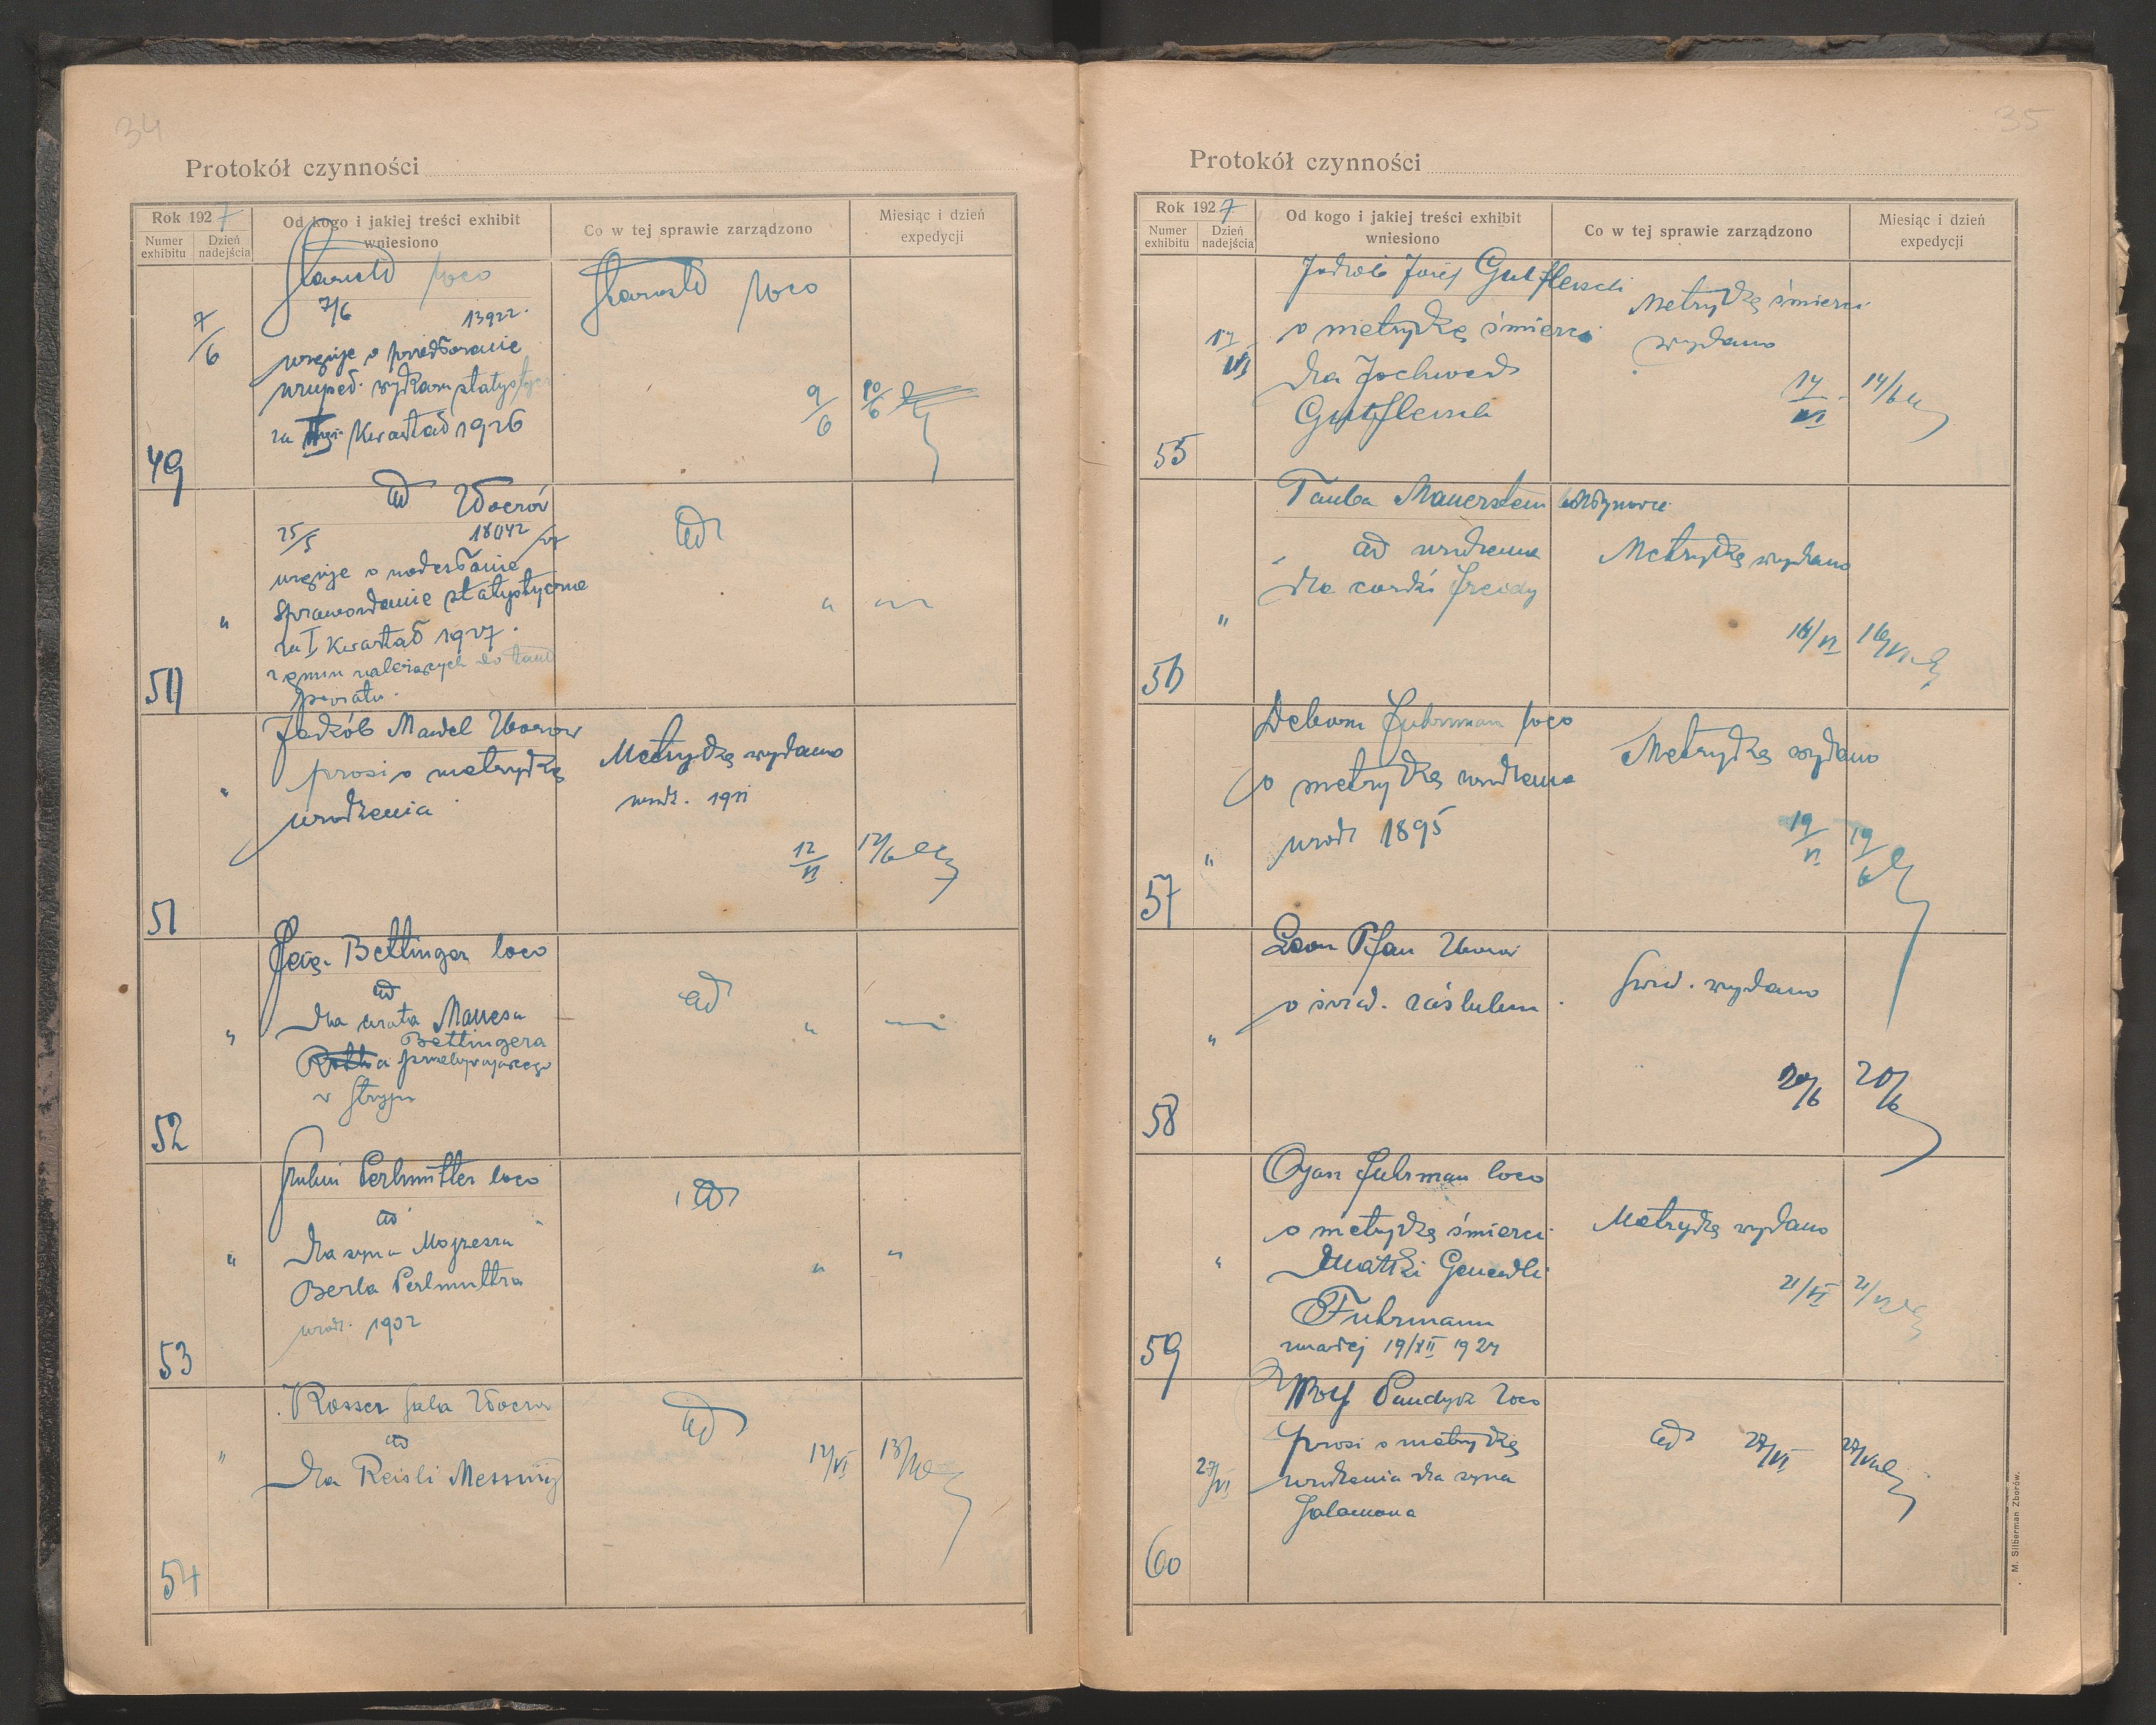 34
Protokół czynności
Rok 1927
Numer exhibitu
Dzień nadejścia
Od kogo i jakiej treści exhibit wniesiono
Co w tej sprawie zarządzono
Miesiąc i dzień expedycji
49
7/6
loco
7/6 13922
urguje o
za kwartał 1926
loco
9/6
10/6
50
"
ad Złoczów
25/5 18042
urguje o nadesłanie
sprawozdanie statystyczne
za I kwartał 1927.
z gmin należących do taud
powiatu.
ad
"
51
"
Jakób Mandel
prosi o metrykę
urodzenia
Metrykę wydano
urodz. 1911
12/VI
12/6
52
"
Bettinger loco
ad
dla brata Manesa
Bettingera
przebywającego
w Stryju
ad
"
53
"
Perlmutter loco
ad
dla syna Mojżesza
Berla Perlmuttra
urodz. 1902
ad
"
"
54
"
Rosser Sala
ad
dla Reisli Messing
ad
12/VI
13/VI
35
Protokół czynności
Rok 1927
Numer exhibitu
Dzień nadejścia
Od kogo i jakiej treści exhibit wniesiono
Co w tej sprawie zarządzono
Miesiąc i dzień expedycji
55
14/VI
Józef Gutfleisch
o metrykę śmierci
dla Jochwed
Gutfleisch
Metrykę śmierci
wydano
14/VI
14/6
56
"
Tauba Mauerstein
ad urodzenia
dla córki Freidy
Metrykę wydano
16/VI
16/VI
57
"
Fuhrman loco
o metrykę urodzenia
urodz 1895
Metrykę wydano
19/VI
19/6
58
"
Leon Pfau
o świad. zaślubin
Świad. wydano
20/6
20/6
59
"
Ojzar Fuhrman loco
o metrykę śmierci
Matki Genendli
Fuhrmann
zmarłej 19/XII 1924
Metrykę wydano
21/VI
21/VI
60
27/VI
Wolf loco
prosi o metrykę
urodzenia dla syna
Salamona
ad
27/VI
27/VI
M. Silberman Zborów.